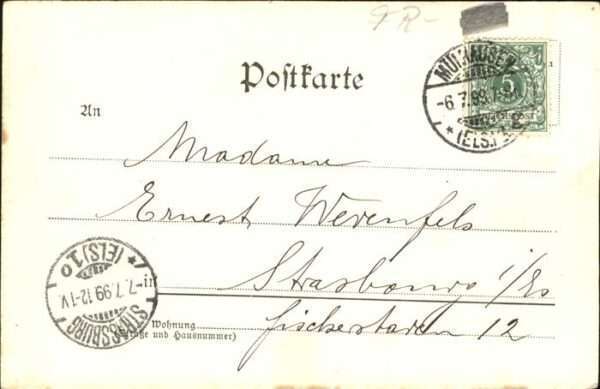 FR-
Postkarte
MÜLHAUSEN
-6.7.99.
*(ELS.)*
5
An
Madame
Ernest Werenfels
in Strasbourg i/Es
Fischerstaden 12
Wohnung
(Straße und Hausnummer)
STRASSBURG
-7.7.99.12-1V.
*(ELS)1o